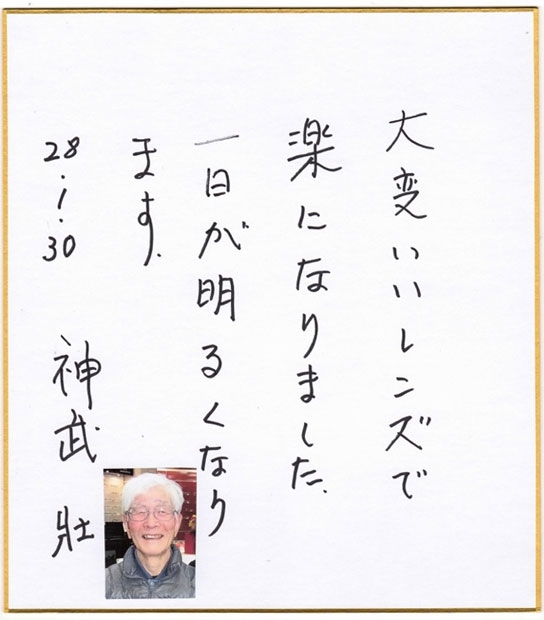 大変いいレンズで
楽になりました.
一日が明るくなり
ます.
28.1.30
神武 壯